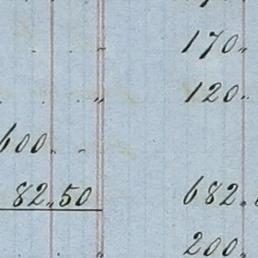 170"
120"
600 " "
82.50 682.
200"